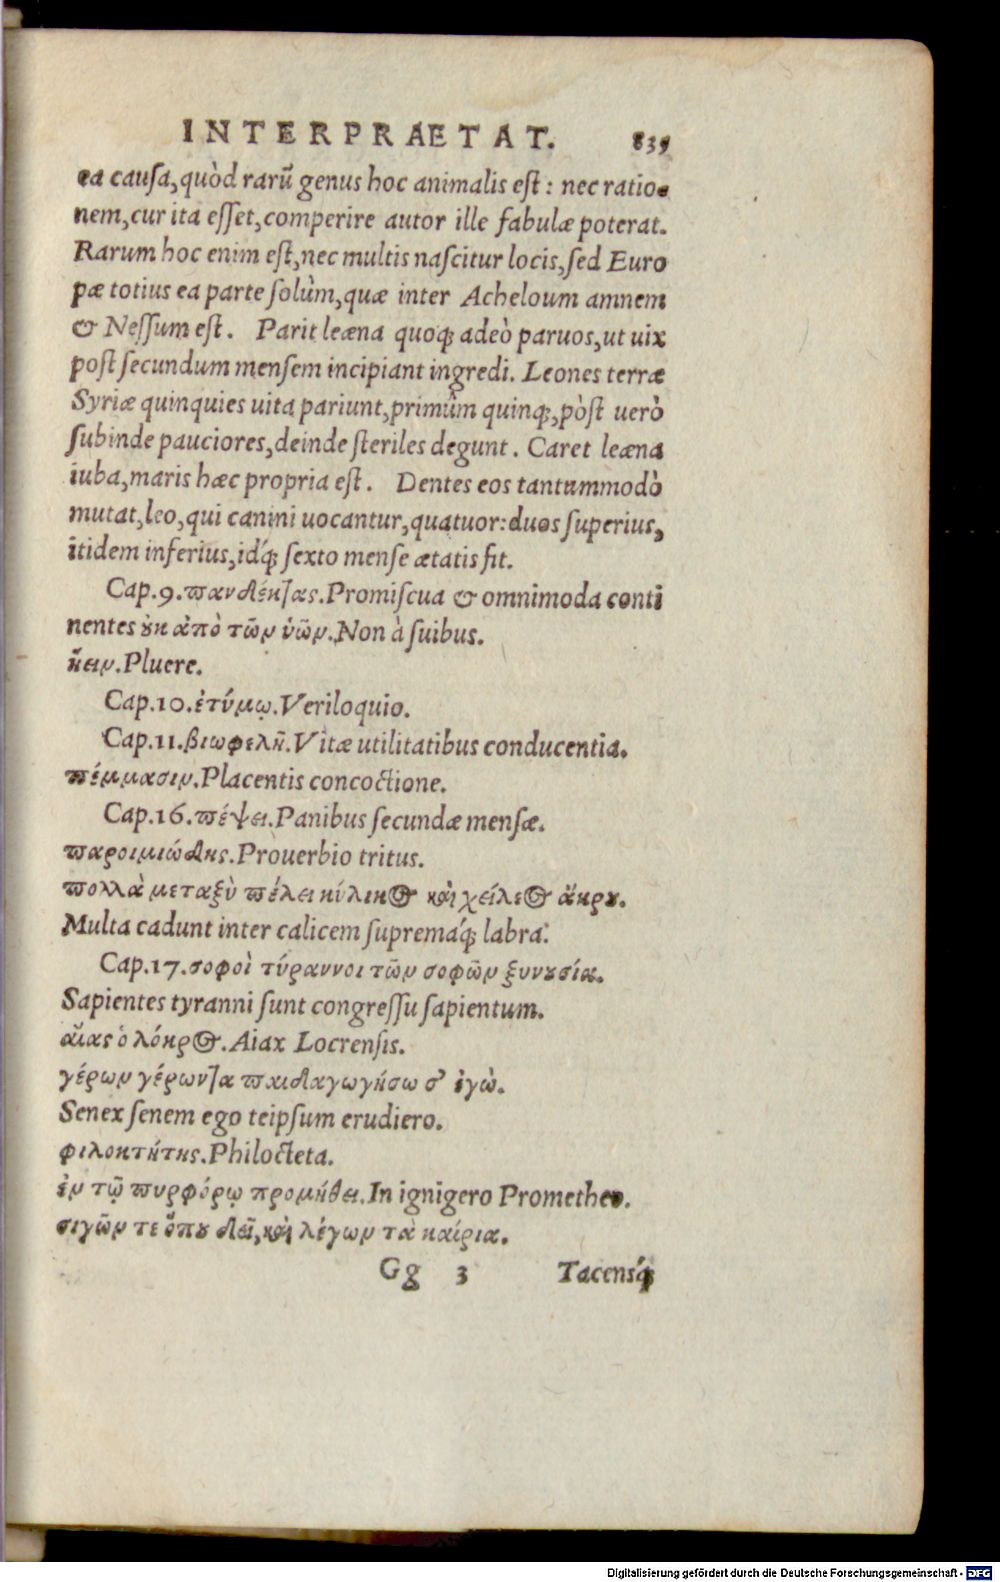 INTERPRAETAT. 835
ea causa, quòd rarũ genus hoc animalis est: nec ratio-
nem, cur ita esset, comperire autor ille fabulæ poterat.
Rarum hoc enim est, nec multis nascitur locis, sed Euro
pæ totius ea parte solùm, quæ inter Acheloum amnem
& Nessum est. Parit leæna quoq; adeò paruos, ut uix
post secundum mensem incipiant ingredi. Leones terræ
Syriæ quinquies uita pariunt, primùm quinq;, pòst uerò
subinde pauciores, deinde steriles degunt. Caret leæna
iuba, maris hæc propria est. Dentes eos tantummodò
mutat, leo, qui canini uocantur, quatuor: duos superius,
itidem inferius, idq́; sexto mense ætatis fit.
Cap.9. πανδέκτας. Promiscua & omnimoda conti
nentes ȣκ ἀπὸ τῶν ὑῶν. Non à suibus.
ὕειν. Pluere.
Cap.10. ἐτύμῳ. Veriloquio.
Cap.11. βιωφελῆ. Vitæ utilitatibus conducentia.
πέμμασιν. Placentis concoctione.
Cap.16. πέψει. Panibus secundæ mensæ.
παροιμιώδης. Prouerbio tritus.
πολλὰ μεταξὺ πέλει κύλικος καὶ χείλεος ἄκρȣ.
Multa cadunt inter calicem supremaq́; labra.
Cap.17. σοφοὶ τύραννοι τῶν σοφῶν ξυνȣσίᾳ.
Sapientes tyranni sunt congressu sapientum.
αἴας ὁ λόκρος. Aiax Locrensis.
γέρων γέροντα παιδαγωγήσω σ' ἐγὼ.
Senex senem ego teipsum erudiero.
φιλοκτήτης. Philocteta.
ἐν τῷ πυρφόρῳ προμήθει. In ignigero Prometheo.
σιγῶν τε ὅπȣ δεῖ, καὶ λέγων τὰ καίρια.
Gg 3 Tacensq́;
Digitalisierung gefördert durch die Deutsche Forschungsgemeinschaft - DFG